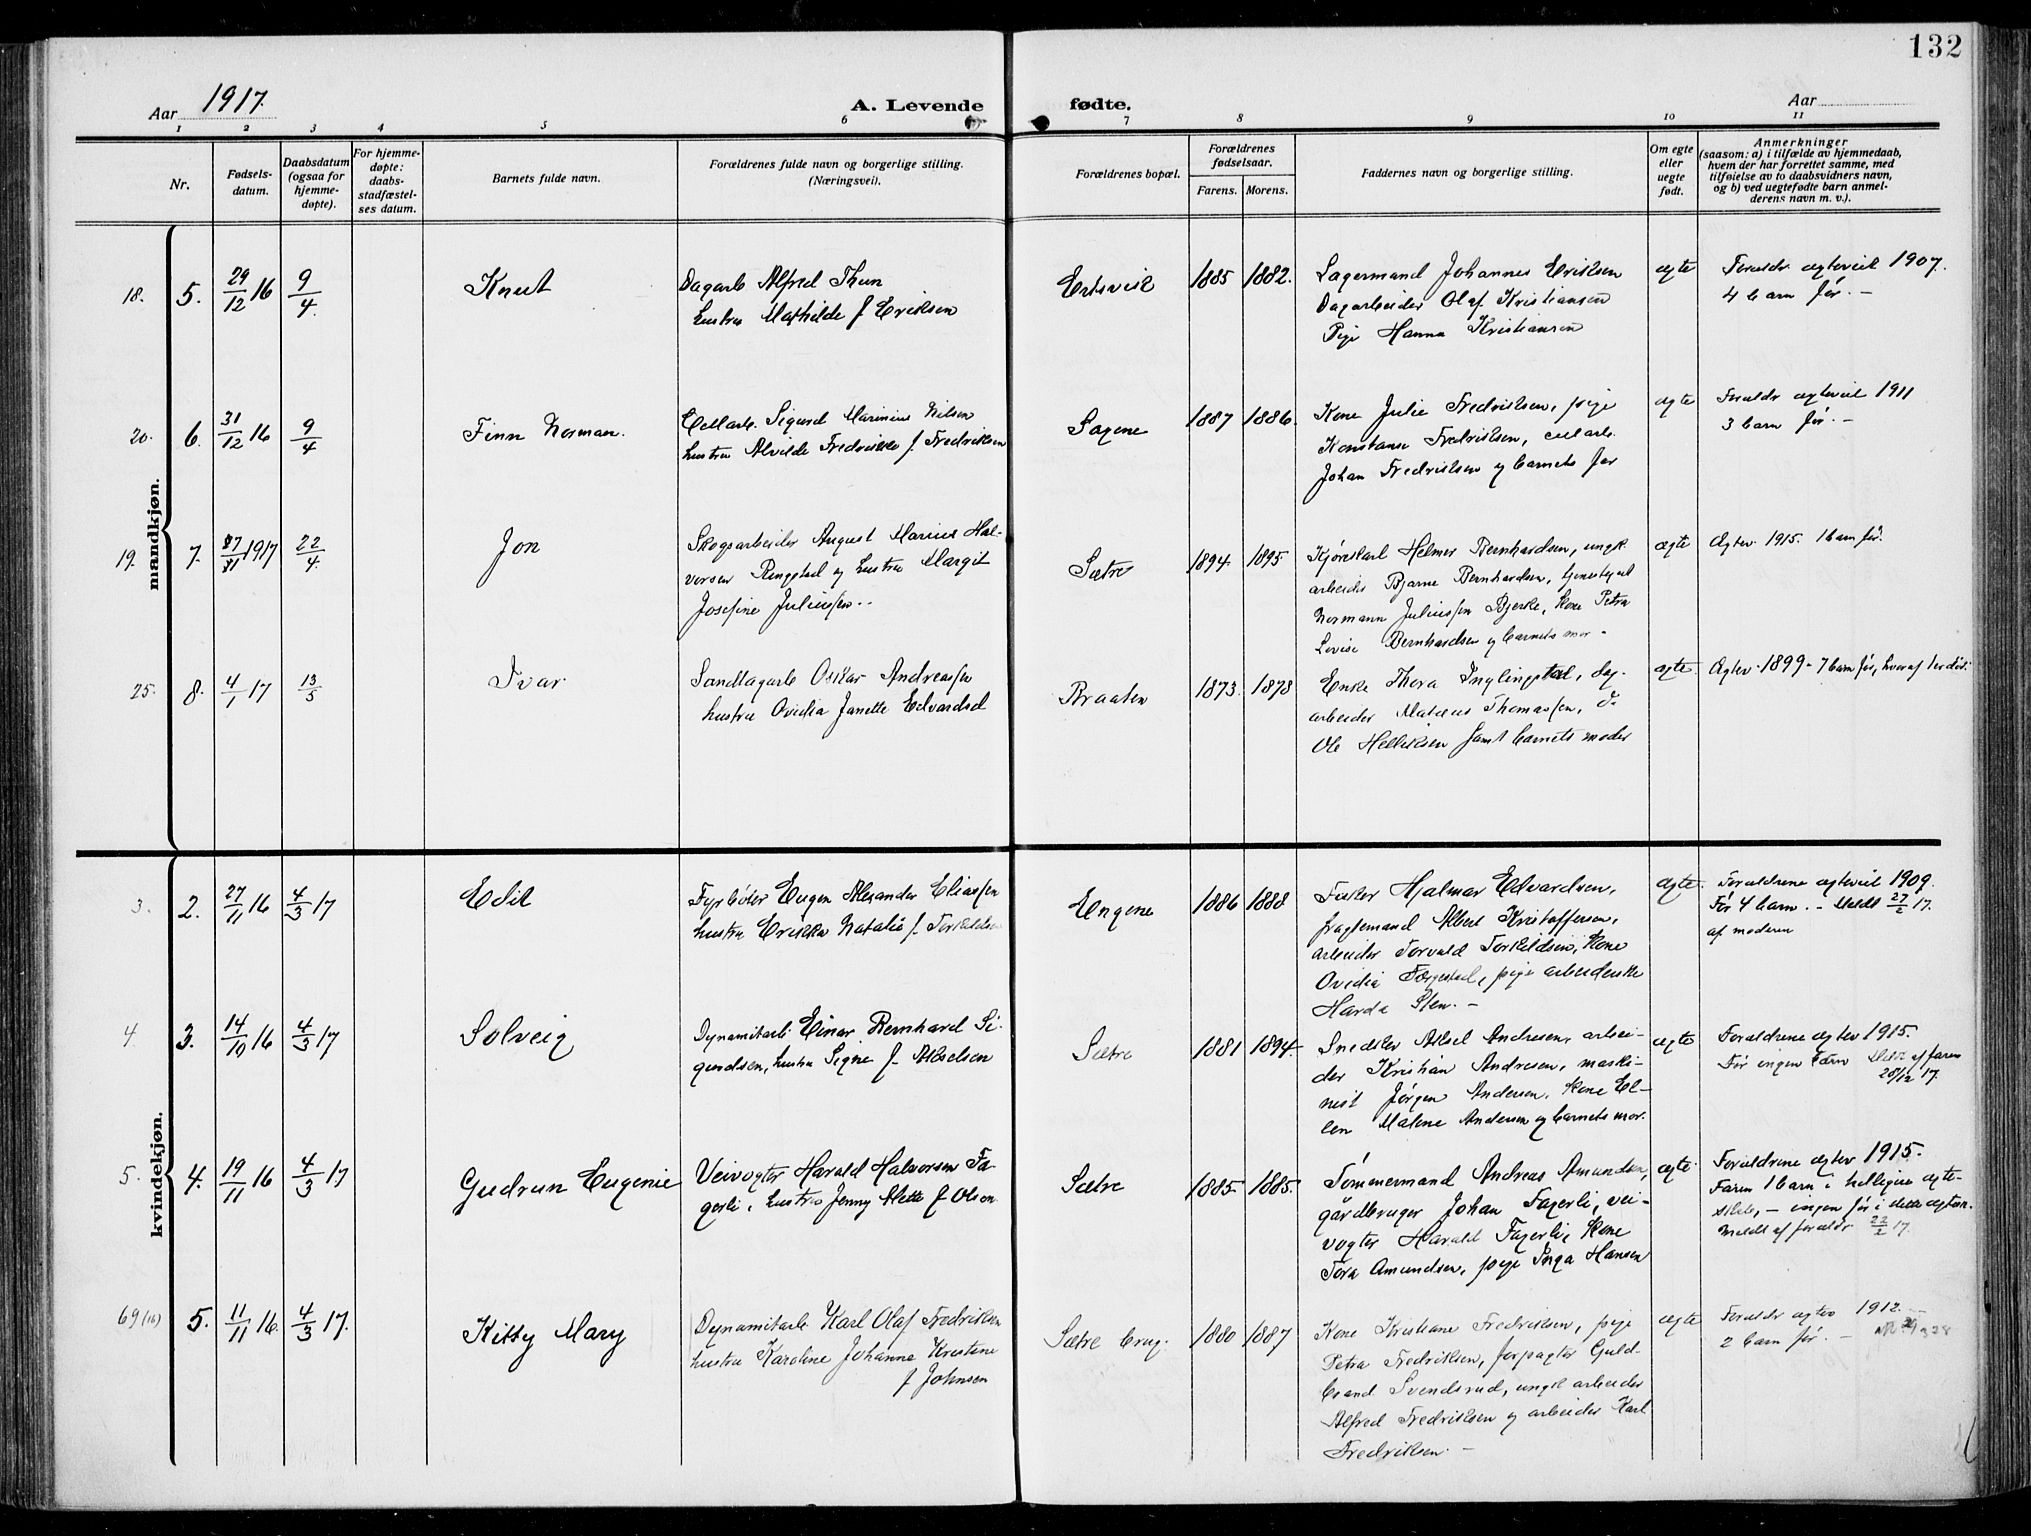 132
Aar 1917.
A. Levende fødte.
Aar
1 2 3 4 5 6 7 8 9 10 11
Nr.
Fødsels-
datum.
Daabsdatum
(ogsaa for
hjemme-
døpte).
For hjemme-
døpte:
daabs-
stadfæstel-
ses datum.
Barnets fulde navn.
Forældrenes fulde navn og borgerlige stilling.
(Næringsvei).
Forældrenes bopæl.
Forældrenes
fødselsaar.
Farens. Morens.
Faddernes navn og borgerlige stilling.
Om egte
eller
uegte
født.
Anmerkninger
(saasom: a) i tilfælde av hjemmedaab,
hvem der har forrettet samme, med
tilføielse av to daabsvidners navn,
og b) ved uegtefødte barn anmel-
derens navn m. v.).
mandkjøn.
18. 5. 29/12 16 9/4 Knut
Dagarb Alfred Thun
hustru Mathilde f Eriksen
Ertsvik 1885 1882.
Lagermand Johannes Eriksen
Dagarbeider Olaf Kristiansen
Pige Hanna Kristiansen
ægte
Foraldr ægteviet 1907.
4 barn før. -
20. 6. 31/12 16 9/4 Finn Norman.
Cellarb. Sigurd Marinius Nilsen
hustru Alvilde Fredrikke f. Fredriksen
Sagene 1887 1886.
Kone Julie Fredriksen, pige
Konstanse Fredriksen, cellarb.
Johan Fredriksen og barnets far
ægte
Foraldr ægteviet 1911
3 barn før. -
19. 7. 1917 22/4. Jon
Skogsarbeider August Marius Hal-
vorsen Ringstad og hustru Margit
Josefine Juliussen..
Sætre 1894 1895
Kjørekarl Helmer Bernhardsen, ungk.
arbeider Bjarne Bernhardsen, tjenestepal
Normann Juliussen Bjerke, Kone Petra
Lovise Bernhardsen og barnets mor -
ægte
Ægtev. 1915. 1 barn før.
25. 8. 4/1 17 13/5 Ivar
Sandtagarb Oskar Andreassen
hustru Ovidia Janette Edvardsd
Braaten 1873. 1878
Enke Thora Inglingstad, dag-
arbeider Mataeus Thomassen, do
Ole Helliksen samt barnets moder
ægte.
Ægtev. 1899 - 7 barn før, hvoraf 1 er død.
kvindekjøn.
3. 2. 27/11 16 4/3 17 Edit
Fyrbøter Eugen Alexander Eliassen
hustru Erikka Natalie f. Torkildsen
Engene 1886 1888
Fisker Hjalmar Edvardsen,
fragtemand Albert Kristoffersen,
arbeider Torvald Torkildsen, Kone
Ovidia Færgestad, pige arbeiderske
Harda Sten. -
ægte.
Foraldrene ægteviet 1909.
Før 4 barn. - Meldt 27/2 17.
af moderen
4 3. 14/10 16 4/3 17 Solveig
Dynamitarb. Einar Bernhard Si-
gurdsen, hustru Signe f. Akselsen
Sætre 1881 1894.
Snedker Aksel Andresen, arbei-
der Kristian Andresen, maski-
nist Jørgen Andersen, Kone El-
len Malene Andersen og barnets mor.
ægte
Foraldrene ægtev 1915.
Før ingen barn Meldt af faren
28/12 17.
5. 4. 19/11 16 4/3 17 Gudrun Eugenie
Veivogter Harald Halvorsen Fa-
gerli, hustru Jenny Alette f Olsen
Sætre 1885. 1885.
Tømmermand Andreas Amundsen,
gårdbruger Johan Fagerli, vei-
vogter Harald Fagerli, Kone
Tora Amundsen, pige Inga Hansen
ægte
Foraldrene ægtev 1915.
Faren 1 barn i tidligere ægte-
skab, - ingen før i dette ægtesk.
Meldt af foraldr 22/2 17.
69 (16) 5. 11/11 16. 4/3 17. Kitty Mary
Dynamitarb Karl Olaf Fredriksen
hustru Karoline Johanne Kristine
f Johnsen
Sætre brug. 1880 1887
Kone Kristiane Fredriksen, pige
Petra Fredriksen, forpagter Guld-
brand Svendsrud, ungk arbeider
Alfred Fredriksen og arbeider Karl
Fredriksen. -
ægte
Foraldr ægtev 1912. -
2 barn før. -